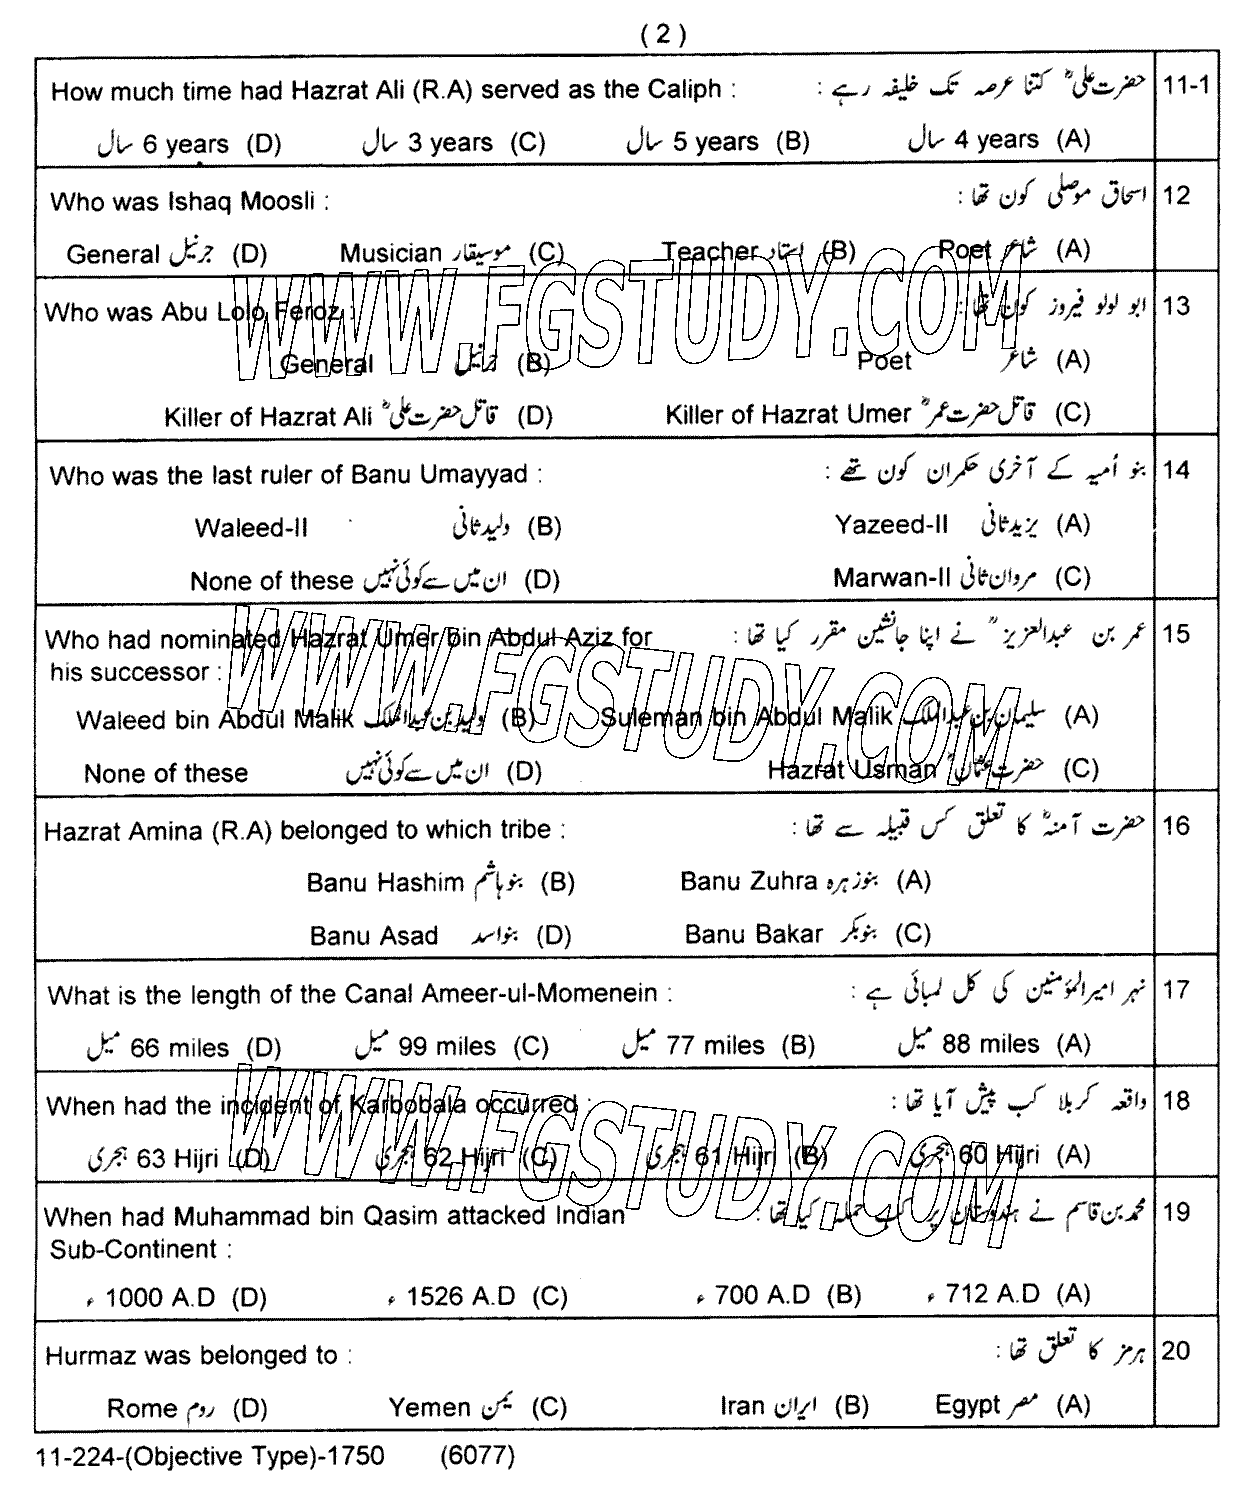 ( 2 )
How much time had Hazrat Ali (R.A) served as the Caliph : حضرت علیؓ کتنا عرصہ تک خلیفہ رہے : 11-1
(A) 4 years سال (B) 5 years سال (C) 3 years سال (D) 6 years سال
Who was Ishaq Moosli : اسحاق موصلی کون تھا : 12
(A) شاعر Poet (B) استاد Teacher (C) موسیقار Musician (D) جرنیل General
Who was Abu Lolo Feroz : ابو لولو فیروز کون تھا : 13
(A) شاعر Poet (B) جرنیل General
(C) قاتل حضرت عمرؓ Killer of Hazrat Umer (D) قاتل حضرت علیؓ Killer of Hazrat Ali
Who was the last ruler of Banu Umayyad : بنو اُمیہ کے آخری حکمران کون تھے : 14
(A) یزید ثانی Yazeed-II (B) ولید ثانی Waleed-II
(C) مروان ثانی Marwan-II (D) ان میں سے کوئی نہیں None of these
Who had nominated Hazrat Umer bin Abdul Aziz for عمر بن عبدالعزیزؒ نے اپنا جانشین مقرر کیا تھا : 15
his successor :
(A) سلیمان بن عبدالملک Suleman bin Abdul Malik (B) ولید بن عبدالملک Waleed bin Abdul Malik
(C) حضرت عثمانؓ Hazrat Usman (D) ان میں سے کوئی نہیں None of these
Hazrat Amina (R.A) belonged to which tribe : حضرت آمنہؓ کا تعلق کس قبیلہ سے تھا : 16
(A) بنو زہرہ Banu Zuhra (B) بنو ہاشم Banu Hashim
(C) بنو بکر Banu Bakar (D) بنو اسد Banu Asad
What is the length of the Canal Ameer-ul-Momenein : نہر امیر المؤمنین کی کل لمبائی ہے : 17
(A) 88 miles میل (B) 77 miles میل (C) 99 miles میل (D) 66 miles میل
When had the incident of Karbobala occurred : واقعہ کربلا کب پیش آیا تھا : 18
(A) 60 Hijri ہجری (B) 61 Hijri ہجری (C) 62 Hijri ہجری (D) 63 Hijri ہجری
When had Muhammad bin Qasim attacked Indian محمد بن قاسم نے ہندوستان پر کب حملہ کیا تھا : 19
Sub-Continent :
(A) 712 A.D ء (B) 700 A.D ء (C) 1526 A.D ء (D) 1000 A.D ء
Hurmaz was belonged to : ہرمز کا تعلق تھا : 20
(A) مصر Egypt (B) ایران Iran (C) یمن Yemen (D) روم Rome
11-224-(Objective Type)-1750 (6077)
WWW.FGSTUDY.COM
WWW.FGSTUDY.COM
WWW.FGSTUDY.COM